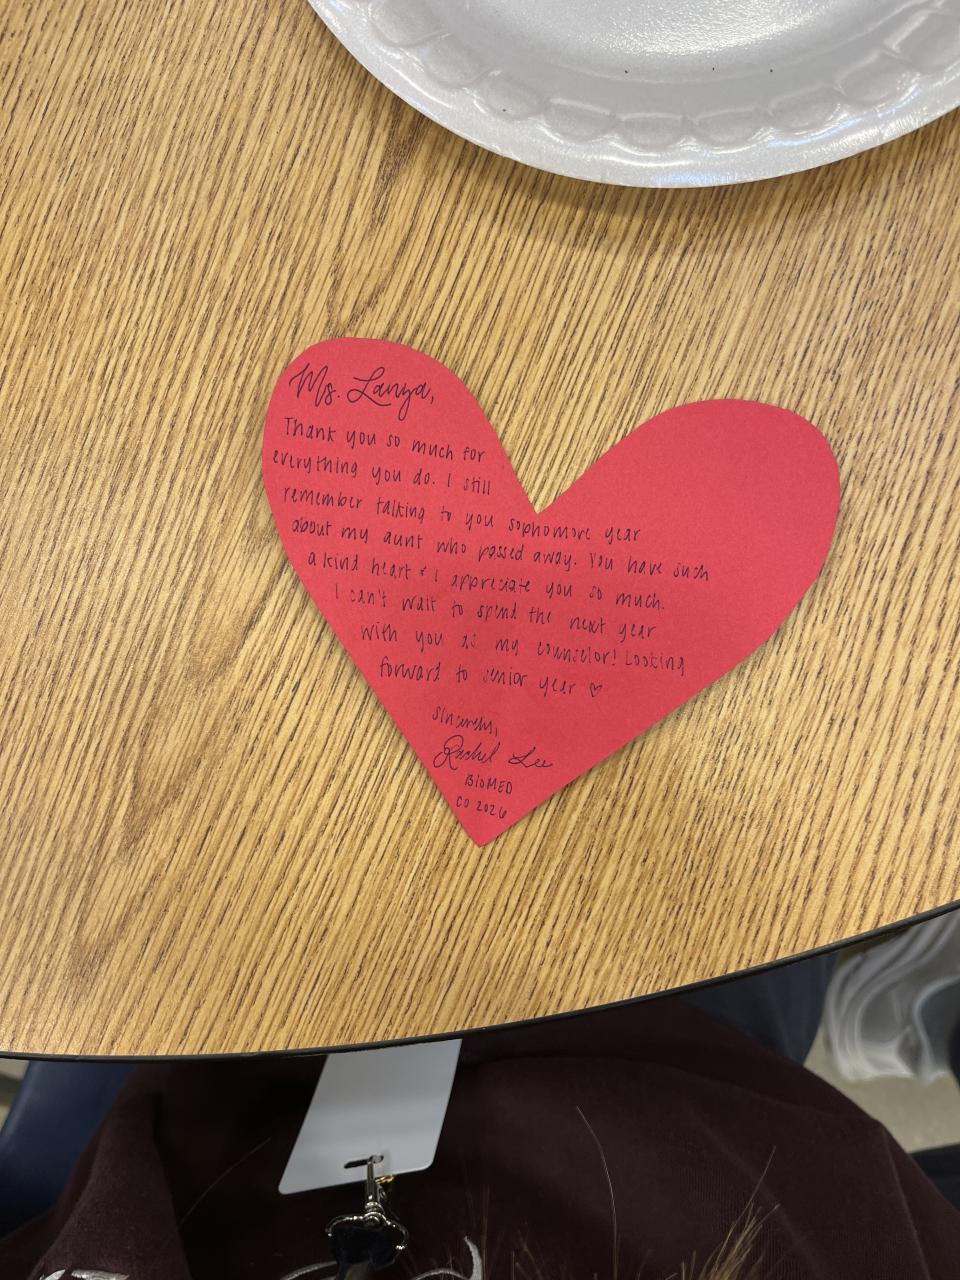 Ms. Lanza,
Thank you so much for
everything you do. I still
remember talking to you sophomore year
about my aunt who passed away. You have such
a kind heart & I appreciate you so much.
I can't wait to spend the next year
with you as my counselor! Looking
forward to senior year ♡
Sincerely,
Rachel Lee
BIOMED
CO 2026